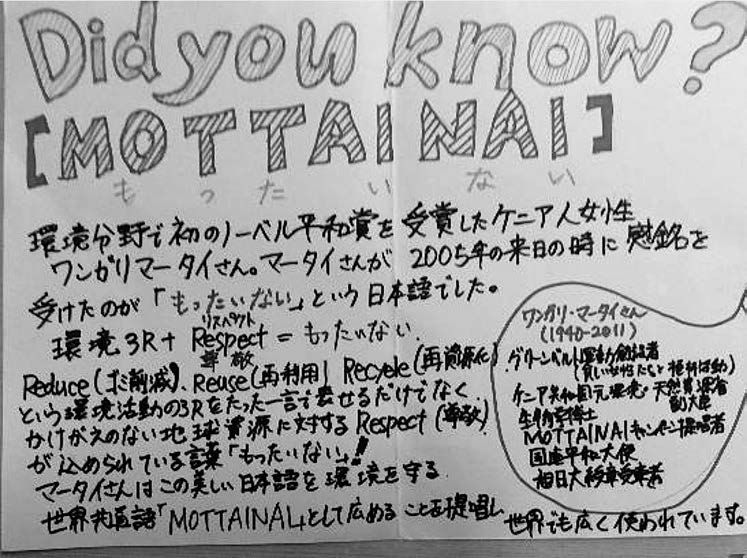 Did you know?
[MOTTAINAI]
もったいない
環境分野で初のノーベル平和賞を受賞したケニア人女性
ワンガリマータイさん。マータイさんが2005年の来日の時に感銘を
受けたのが「もったいない」という日本語でした。
リスペクト
環境3R+Respect=もったいない
尊敬
Reduce(ゴミ削減)、Reuse(再利用) Recycle(再資源化)
という環境活動の3Rをたった一言で表せるだけでなく
かけがえのない地球資源に対するRespect(尊敬)
が込められている言葉「もったいない」!
マータイさんはこの美しい日本語を環境を守る
世界共通語「MOTTAINAI」として広めることを提唱し
世界でも広く使われています。
ワンガリ・マータイさん
(1940-2011)
グリーンベルト運動創設者
(貧しい女性たちと植林活動)
ケニア共和国元環境・天然資源省
副大臣
生物学博士
MOTTAINAIキャンペーン提唱者
国連平和大使
旭日大綬章受章者